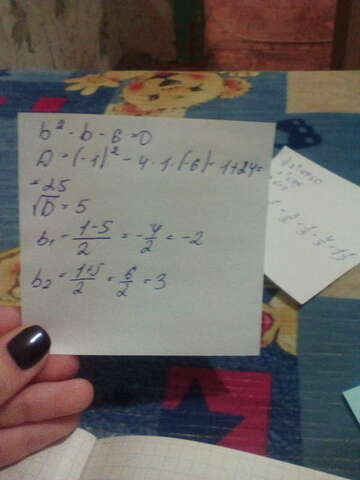 b² - b - 6 = 0
D = (-1)² - 4 · 1 · (-6) = 1+24=
= 25
√D = 5
b₁ = (1-5)/2 = -4/2 = -2
b₂ = (1+5)/2 = 6/2 = 3